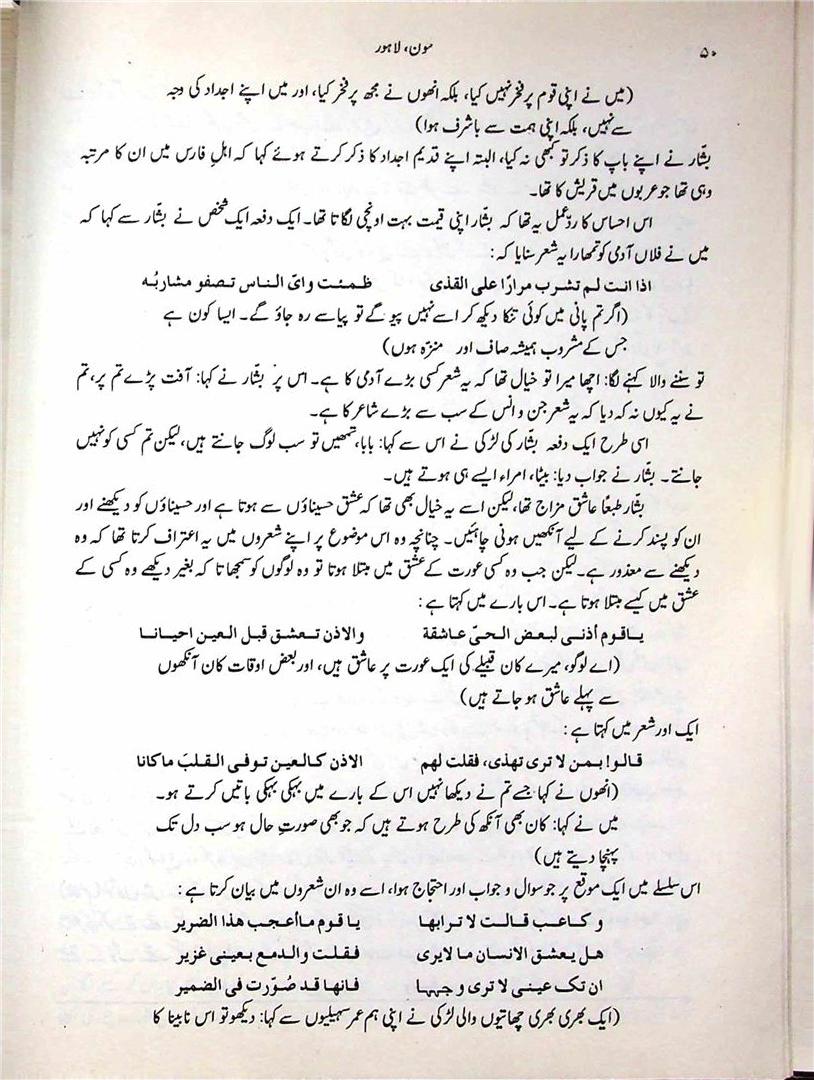 ۵۰ سون، لاہور
(میں نے اپنی قوم پر فخر نہیں کیا، بلکہ انھوں نے مجھ پر فخر کیا، اور میں اپنے اجداد کی وجہ
سے نہیں، بلکہ اپنی ہمت سے باشرف ہوا)
بشّار نے اپنے باپ کا ذکر تو کبھی نہ کیا، البتہ اپنے قدیم اجداد کا ذکر کرتے ہوئے کہا کہ اہلِ فارس میں ان کا مرتبہ
وہی تھا جو عربوں میں قریش کا تھا۔
اس احساس کا ردِّعمل یہ تھا کہ بشّار اپنی قیمت بہت اونچی لگاتا تھا۔ ایک دفعہ ایک شخص نے بشّار سے کہا کہ
میں نے فلاں آدمی کو تمھارا یہ شعر سنایا کہ:
اذا انت لم تشرب مرارًا علی القذی ظمئت وایّ الناس تصفو مشاربُہ
(اگر تم پانی میں کوئی تنکا دیکھ کر اسے نہیں پیو گے تو پیاسے رہ جاؤ گے۔ ایسا کون ہے
جس کے مشروب ہمیشہ صاف اور منزّہ ہوں)
تو سننے والا کہنے لگا: اچھا میرا تو خیال تھا کہ یہ شعر کسی بڑے آدمی کا ہے۔ اس پر بشّار نے کہا: آفت پڑے تم پر، تم
نے یہ کیوں نہ کہ دیا کہ یہ شعر جن و انس کے سب سے بڑے شاعر کا ہے۔
اسی طرح ایک دفعہ بشّار کی لڑکی نے اس سے کہا: بابا، تمھیں تو سب لوگ جانتے ہیں، لیکن تم کسی کو نہیں
جانتے۔ بشّار نے جواب دیا: بیٹا، امراء ایسے ہی ہوتے ہیں۔
بشّار طبعًا عاشق مزاج تھا، لیکن اسے یہ خیال بھی تھا کہ عشق حسیناؤں سے ہوتا ہے اور حسیناؤں کو دیکھنے اور
ان کو پسند کرنے کے لیے آنکھیں ہونی چاہئیں۔ چنانچہ وہ اس موضوع پر اپنے شعروں میں یہ اعتراف کرتا تھا کہ وہ
دیکھنے سے معذور ہے۔ لیکن جب وہ کسی عورت کے عشق میں مبتلا ہوتا تو وہ لوگوں کو سمجھاتا کہ بغیر دیکھے وہ کسی کے
عشق میں کیسے مبتلا ہوتا ہے۔ اس بارے میں کہتا ہے:
یاقوم أذنی لبعض الحیّ عاشقة والاذن تعشق قبل العین احیانا
(اے لوگو، میرے کان قبیلے کی ایک عورت پر عاشق ہیں، اور بعض اوقات کان آنکھوں
سے پہلے عاشق ہو جاتے ہیں)
ایک اور شعر میں کہتا ہے:
قالوا بمن لا تری تھذی، فقلت لھم الاذن کالعین توفی القلبَ ماکانا
(انھوں نے کہا جسے تم نے دیکھا نہیں اس کے بارے میں بہکی بہکی باتیں کرتے ہو۔
میں نے کہا: کان بھی آنکھ کی طرح ہوتے ہیں کہ جو بھی صورتِ حال ہو سب دل تک
پہنچا دیتے ہیں)
اس سلسلے میں ایک موقع پر جو سوال و جواب اور احتجاج ہوا، اسے وہ ان شعروں میں بیان کرتا ہے:
و کاعب قالت لا ترابھا یا قوم مااعجب ھذا الضریر
ھل یعشق الانسان ما لایری فقلت والدمع بعینی غزیر
ان تک عینی لا تری وجہہا فانھا قد صُوّرت فی الضمیر
(ایک بھری بھری چھاتیوں والی لڑکی نے اپنی ہم عمر سہیلیوں سے کہا: دیکھو تو اس نابینا کا